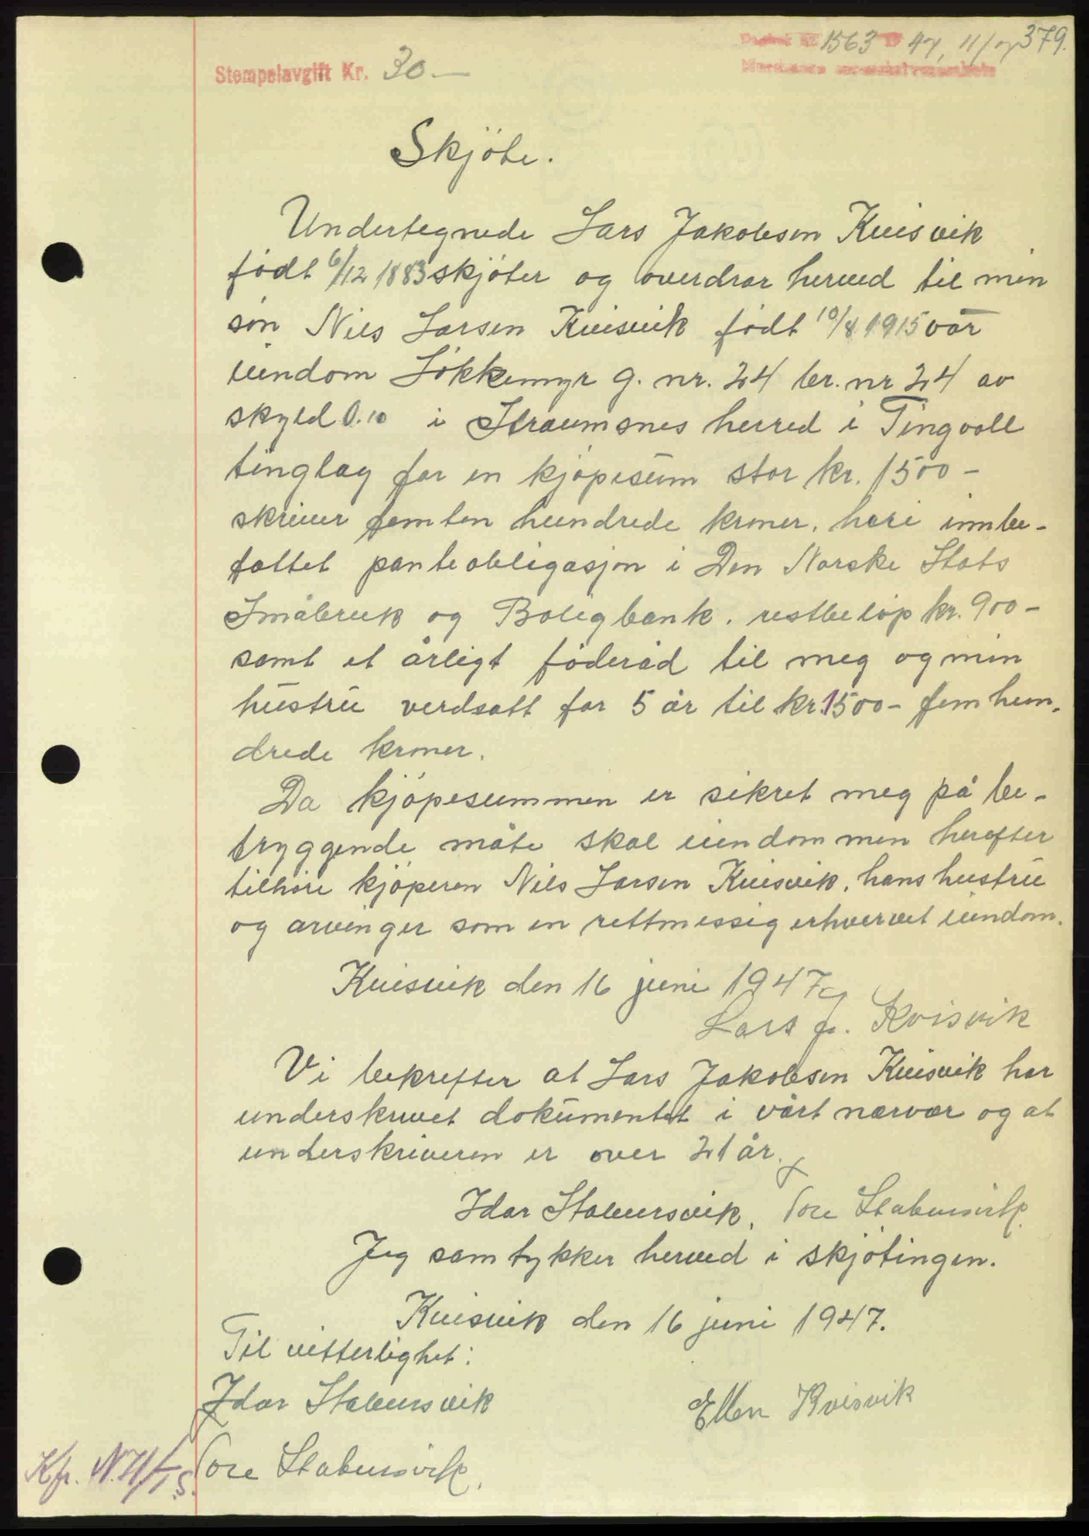 379.
1563 47, 11/7
Stempelavgift Kr. 30.—
Skjöte.
Undertegnede Lars Jakobsen Kvisvik
født 6/12 1883 skjöter og overdrar herved til min
sön Nils Larsen Kvisvik født 10/8 1915 vår
eiendom Lökkemyr g. nr. 24 br. nr 24 av
skyld 0.10 i Straumsnes herred i Tingvoll
tinglag for en kjöpesum stor kr. 1500 –
skriver femten hundrede kroner, heri innbe-
fattet panteobligasjon i Den Norske Stats
Småbruk og Boligbank. restbelöp kr. 900 –
samt et årligt föderåd til meg og min
hustru verdsatt for 5 år til kr 1500 – fem hun-
drede kroner.
Da kjöpesummen er sikret meg på be-
tryggende måte skal eiendommen herefter
tilhöre kjöperen Nils Larsen Kvisvik, hans hustru
og arvinger som en rettmessig erhvervet eiendom.
Kvisvik den 16 juni 1947
Lars J. Kvisvik
Vi bekrefter at Lars Jakobsen Kvisvik har
underskrevet dokumentet i vårt nærvær og at
underskriveren er over 21 år.
Idar Stabursvik, Tore Stabursvik.
Jeg samtykker herved i skjötingen.
Kvisvik den 16 juni 1947.
Til vitterlighet:
Idar Stabursvik
Ellen Kvisvik
Tore Stabursvik.
Kfr.